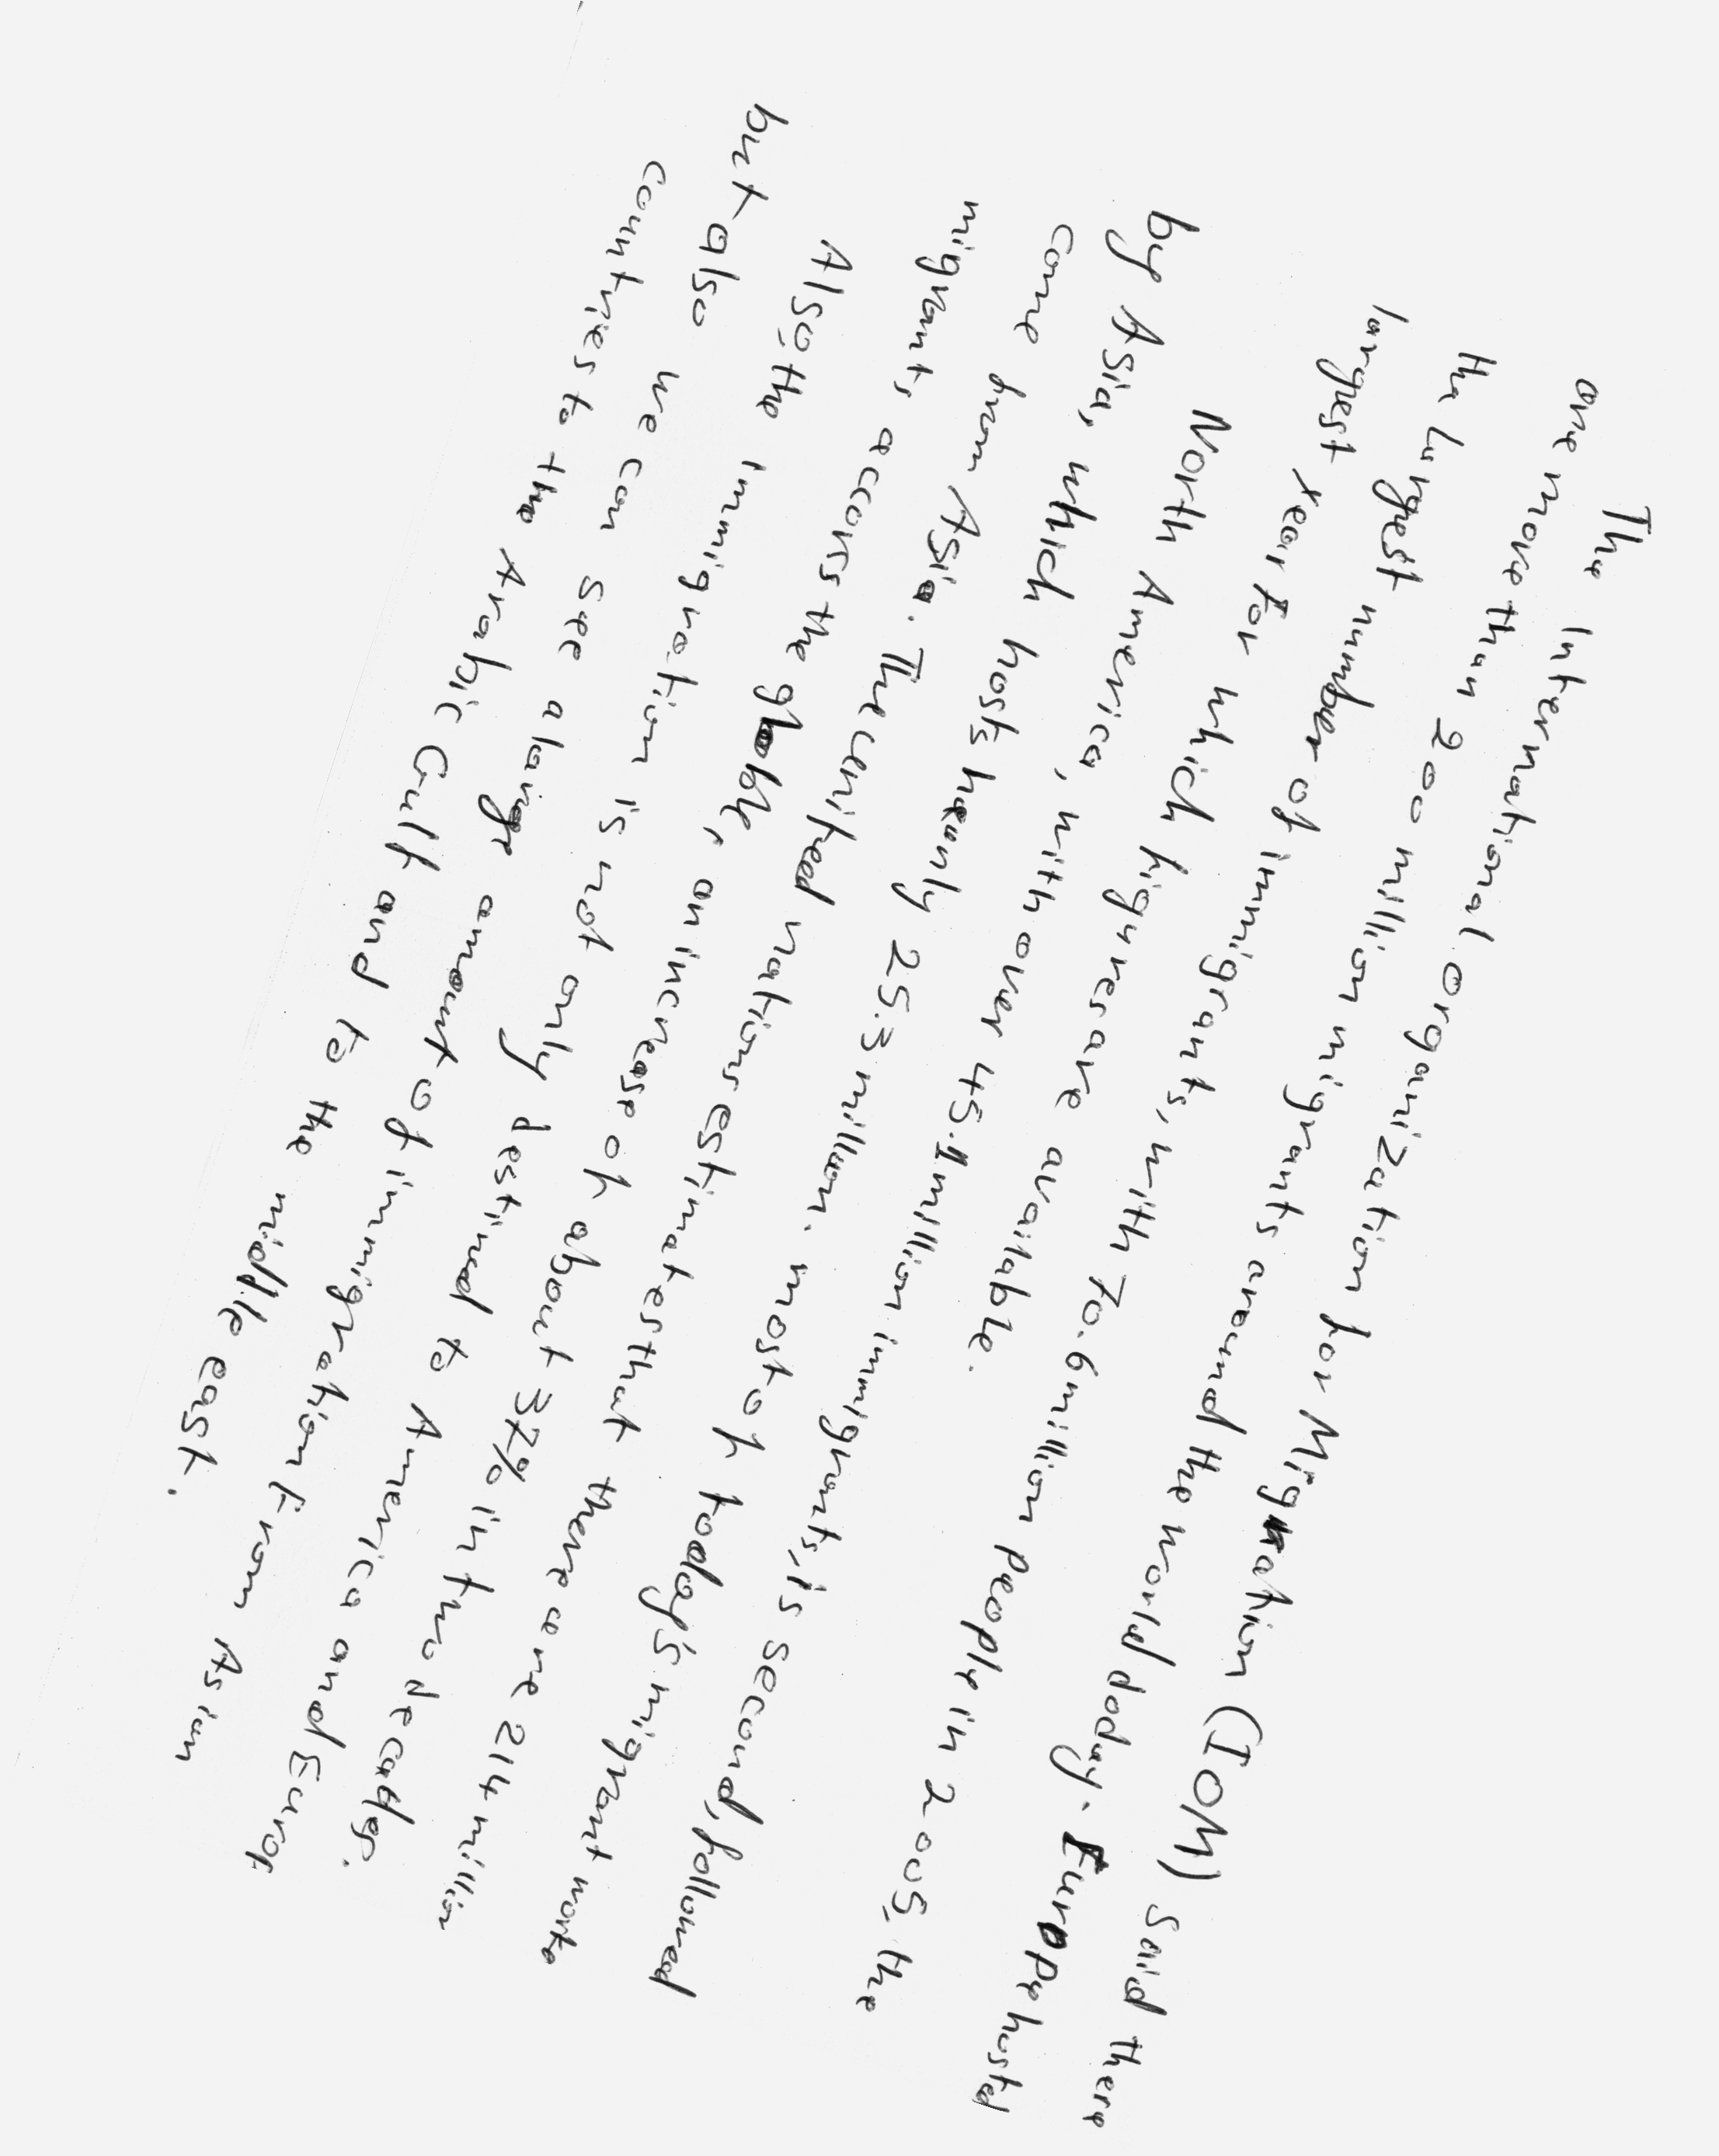 The International organization for Migration (IOM) said there
are more than 200 million migrants around the world doday. Europe hosted
the largest number of immigrants, with 70.6 million people in 2005, the
largest year for which figures are available.
North America, with over 45.1 million immigrants, is second, followed
by Asia, which hosts heanly 25.3 million. most of today's migrant worke
come from Asia. The United nations estimates that there are 214 million
migrants accorss the globle, an increase of about 37% in two decades.
Also, the immigration is not only destined to America and Europ
but also we can see a large amount of immigration from Asian
countries to the Arabic Gulf and to the middle east.